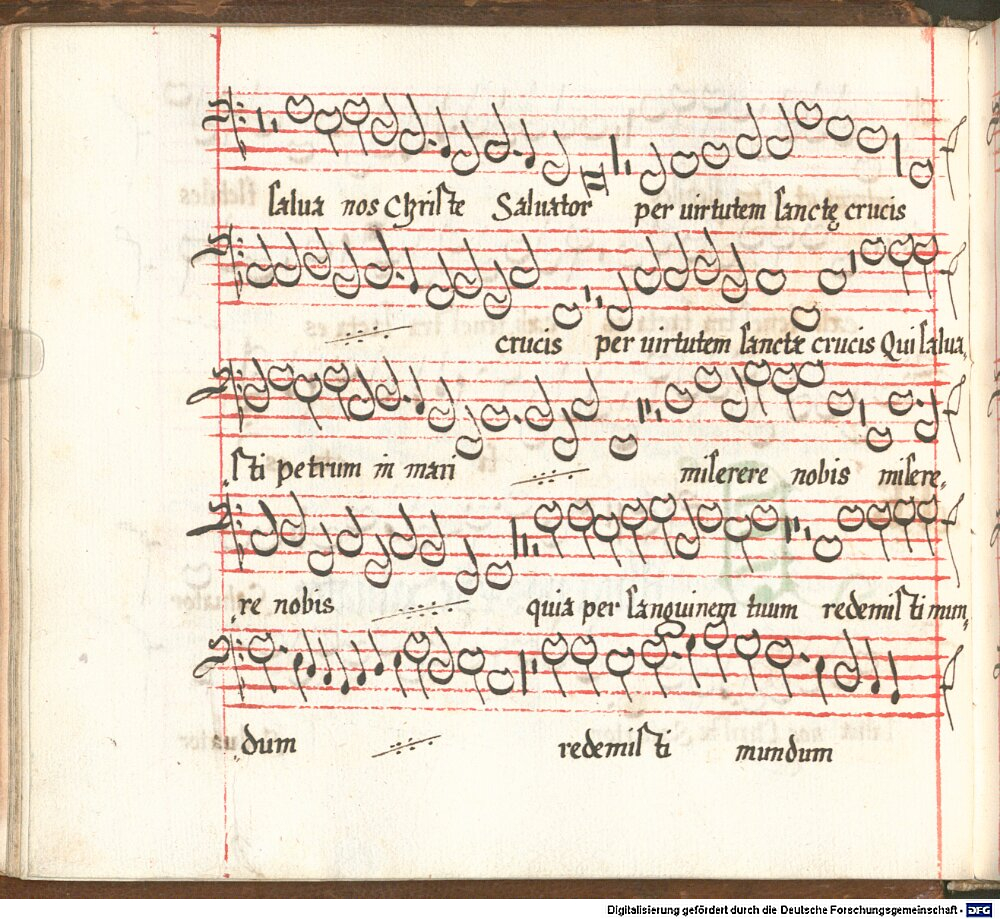 salua nos Christe Saluator per uirtutem sanctę crucis
crucis per uirtutem sanctæ crucis Qui salua,
,sti petrum in mari miserere nobis misere,
,re nobis quia per sanguinem tuum redemisti mun,
,dum redemisti mundum
Digitalisierung gefördert durch die Deutsche Forschungsgemeinschaft - DFG